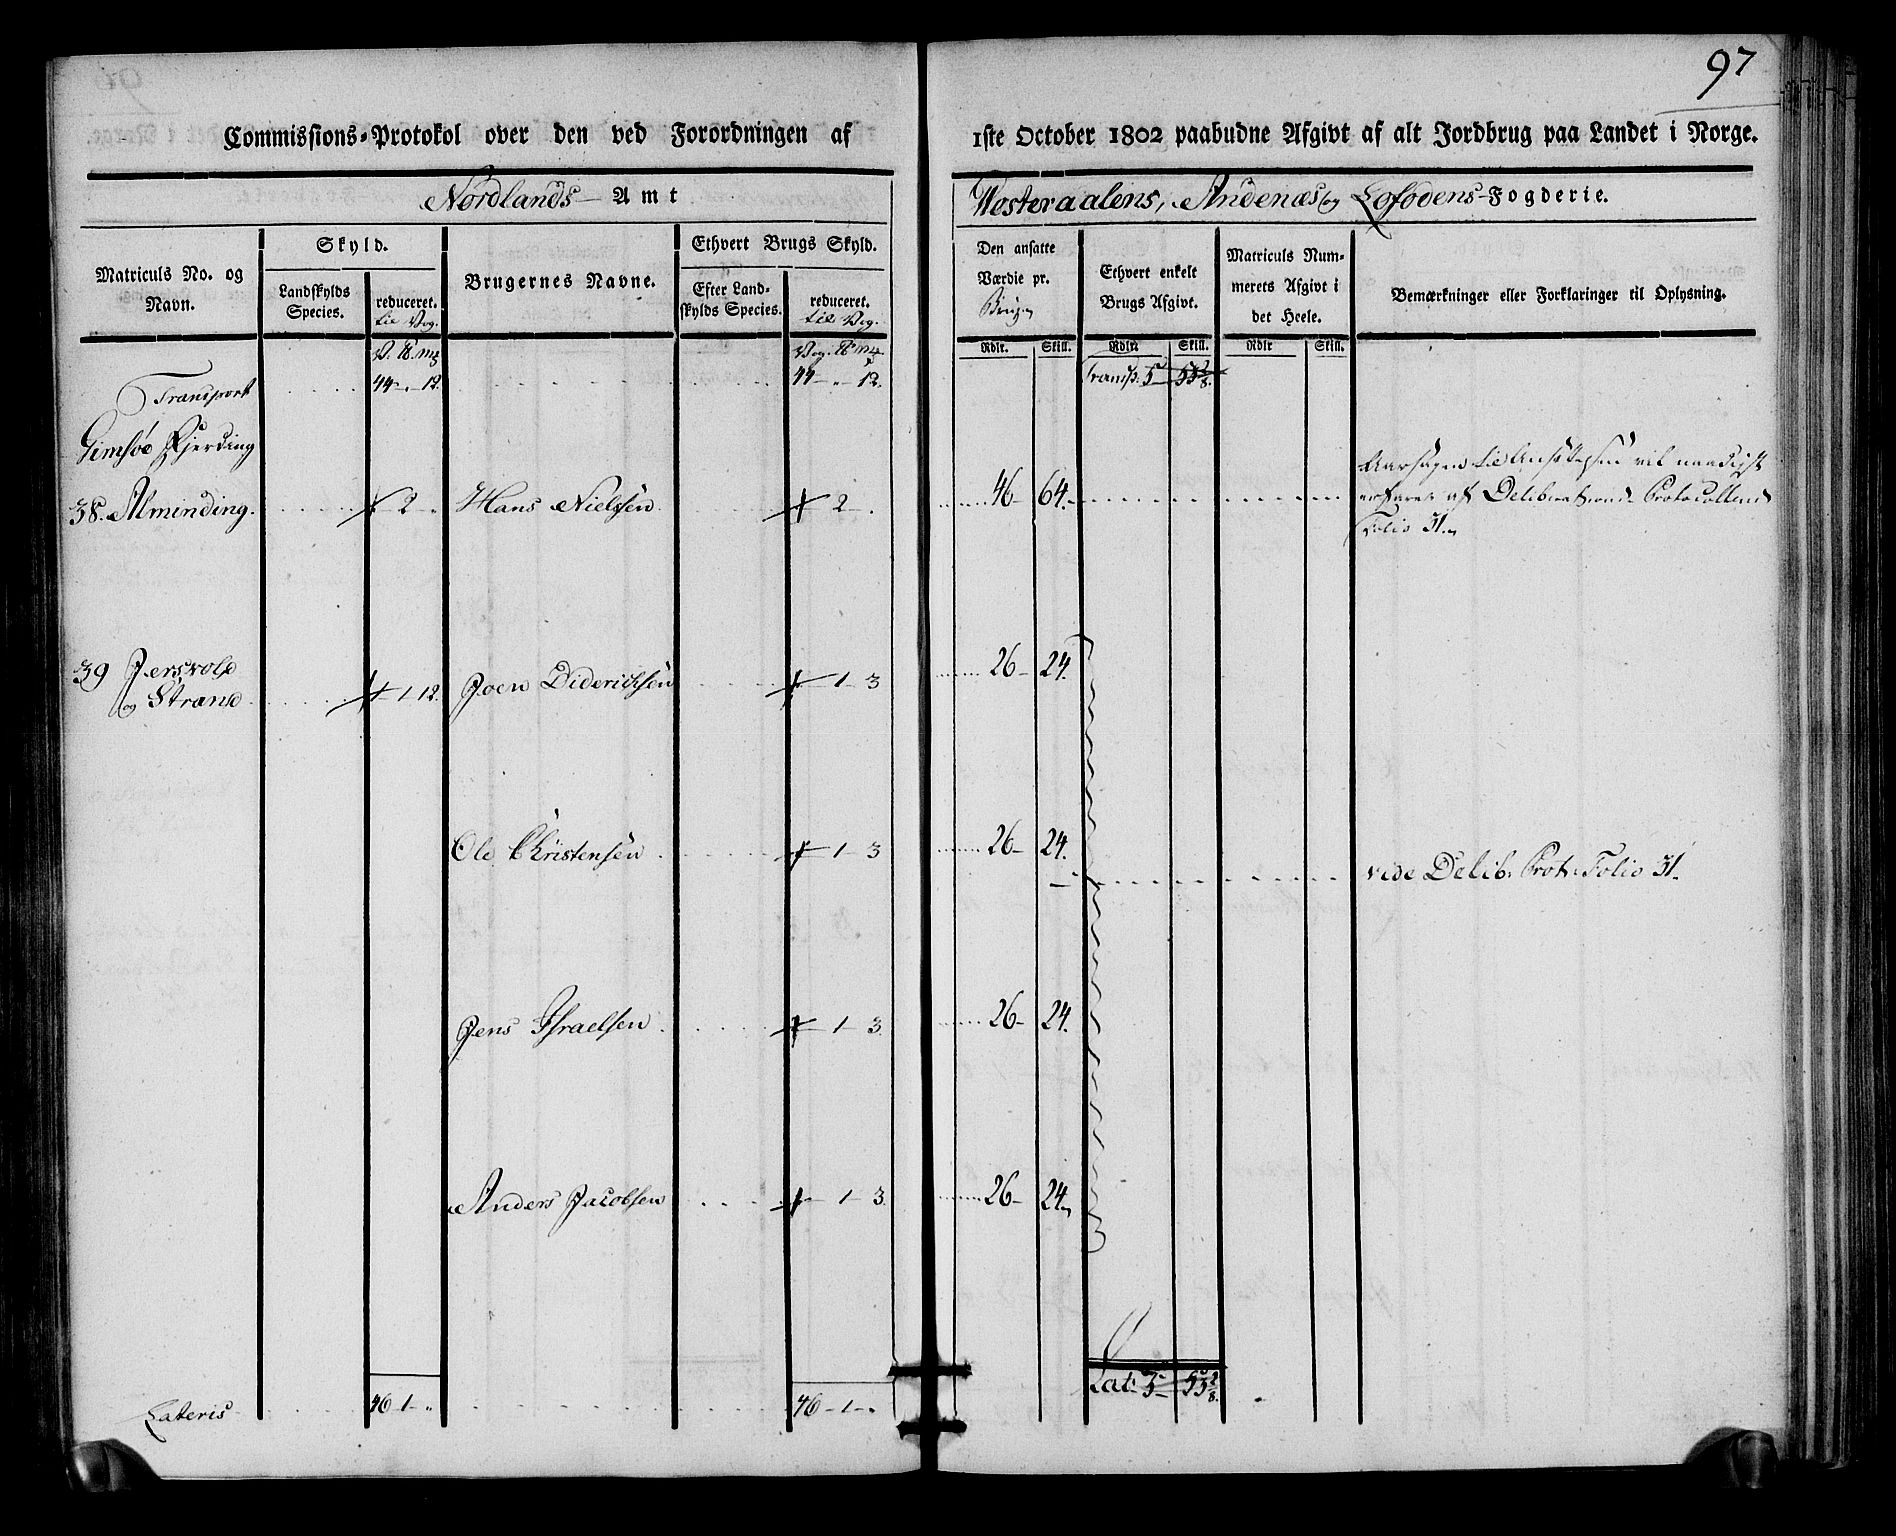 97
Commissions-Protokol over den ved Forordningen af 1ste October 1802 paabudne Afgivt af alt Jordbrug paa Landet i Norge.
Nordlands Amt
Westeraalens, Andenæs og Lofodens-Fogderie.
Matriculs No. og Navn.
Skyld.
Landskylds Species.
reduceret. til Vog.
Brugernes Navne.
Ethvert Brugs Skyld.
Efter Landskylds Species.
reduceret. til Vog.
Den ansatte Værdie pr.
Ethvert enkelt Brugs Afgivt.
Matriculs Nummerets Afgivt i det Heele.
Bemærkninger eller Forklaringer til Oplysning.
Rdlr. Skill. Rdlr. Skill. Rdlr Skill.
Transport 44 - " - 12. 44 - " - 12. Transp: 5 - 55 2/8.
Gimsöe Fjerding
38. Alminding. 2 - " Hans Nielssen 2 - " 46 - 64.
Aarsagen til Ansættelsen vil
erfares af Deliberations Protocollens
Folio 31.
39 Jerswold
og Strand 1 - 12. Joen Diderichsen 1 - 3 26 - 24.
Ole Christensen 1 - 3 26 - 24.
vide Delib. Prot. Folio 31.
Jens Israelsen 1 - 3. 26 - 24.
Anders Jacobsen 1 - 3. 26 - 24.
Lateris 46 - 1 - " 46 - 1 - " Lat: 5 - 55 2/8.